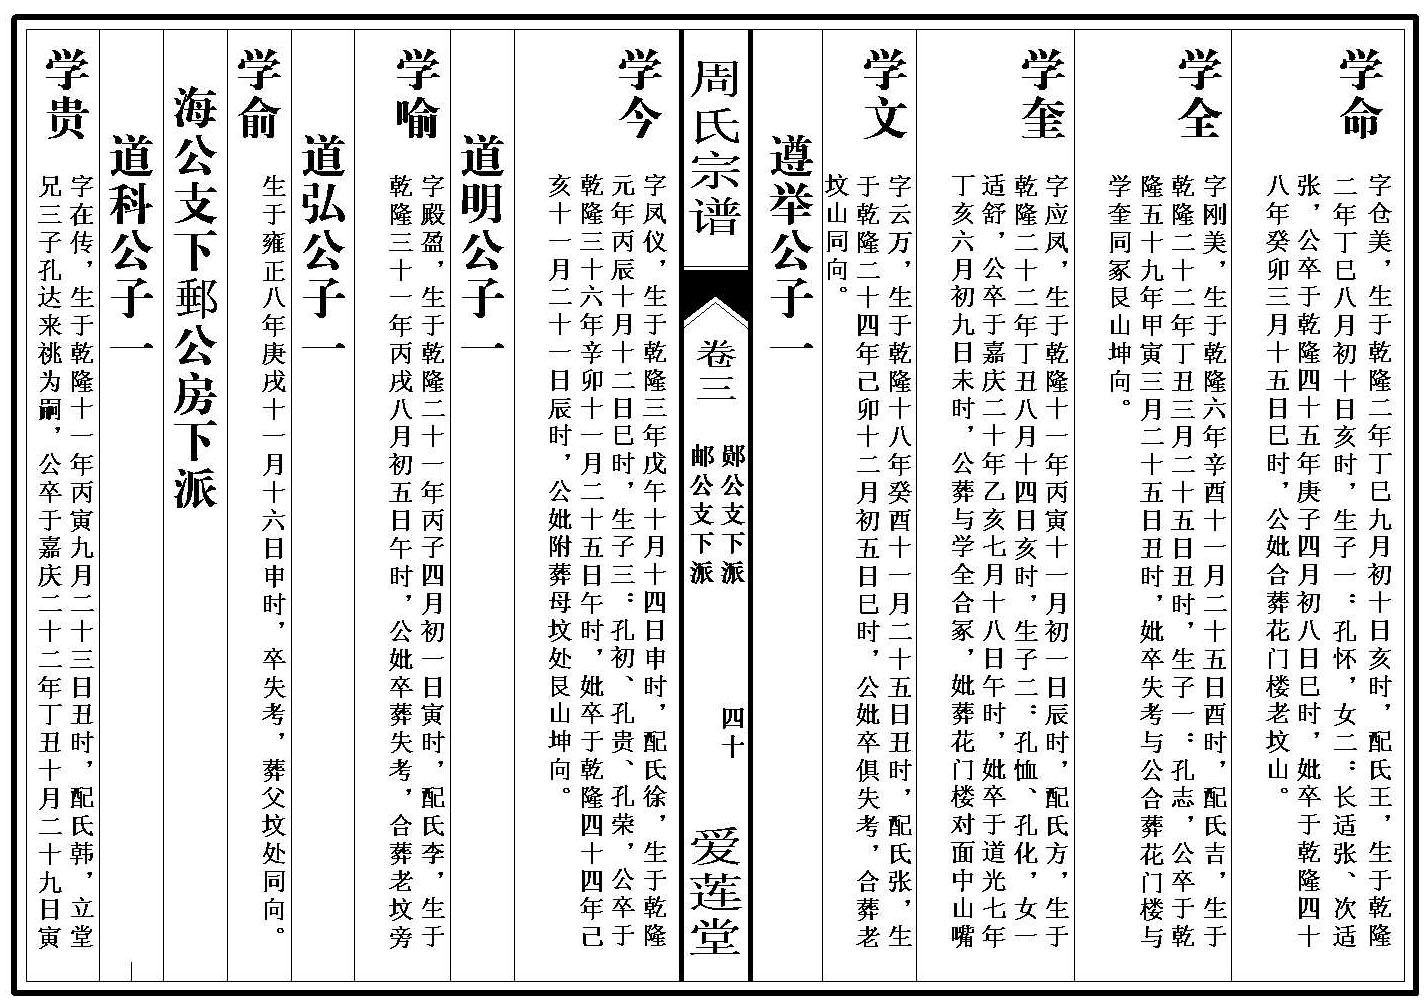 学命
字仓美，生于乾隆二年丁巳九月初十日亥时，配氏王，生于乾隆
二年丁巳八月初十日亥时，生子一：孔怀，女二：长适张、次适
张，公卒于乾隆四十五年庚子四月初八日巳时，妣卒于乾隆四十
八年癸卯三月十五日巳时，公妣合葬花门楼老坟山。
学全
字刚美，生于乾隆六年辛酉十一月二十五日酉时，配氏吉，生于
乾隆二十二年丁丑三月二十五日丑时，生子一：孔志，公卒于乾
隆五十九年甲寅三月二十五日丑时，妣卒失考与公合葬花门楼与
学奎同冢艮山坤向。
学奎
字应凤，生于乾隆十一年丙寅十一月初一日辰时，配氏方，生于
乾隆二十二年丁丑八月十四日亥时，生子二：孔恤、孔化，女一
适舒，公卒于嘉庆二十年乙亥七月十八日午时，妣卒于道光七年
丁亥六月初九日未时，公葬与学全合冢，妣葬花门楼对面中山嘴
学文
字云万，生于乾隆十八年癸酉十一月二十五日丑时，配氏张，生
于乾隆二十四年己卯十二月初五日巳时，公妣卒俱失考，合葬老
坟山同向。
遵举公子一
周氏宗谱
卷三
郧公支下派
邮公支下派
四十
爱莲堂
学今
字凤仪，生于乾隆三年戊午十月十四日申时，配氏徐，生于乾隆
元年丙辰十月十二日巳时，生子三：孔初、孔贵、孔荣，公卒于
乾隆三十六年辛卯十一月二十五日午时，妣卒于乾隆四十四年己
亥十一月二十一日辰时，公妣附葬母坟处艮山坤向。
道明公子一
学喻
字殿盈，生于乾隆二十一年丙子四月初一日寅时，配氏李，生于
乾隆三十一年丙戌八月初五日午时，公妣卒葬失考，合葬老坟旁
道弘公子一
学俞
生于雍正八年庚戌十一月十六日申时，卒失考，葬父坟处同向。
海公支下郵公房下派
道科公子一
学贵
字在传，生于乾隆十一年丙寅九月二十三日丑时，配氏韩，立堂
兄三子孔达来祧为嗣，公卒于嘉庆二十二年丁丑十月二十九日寅